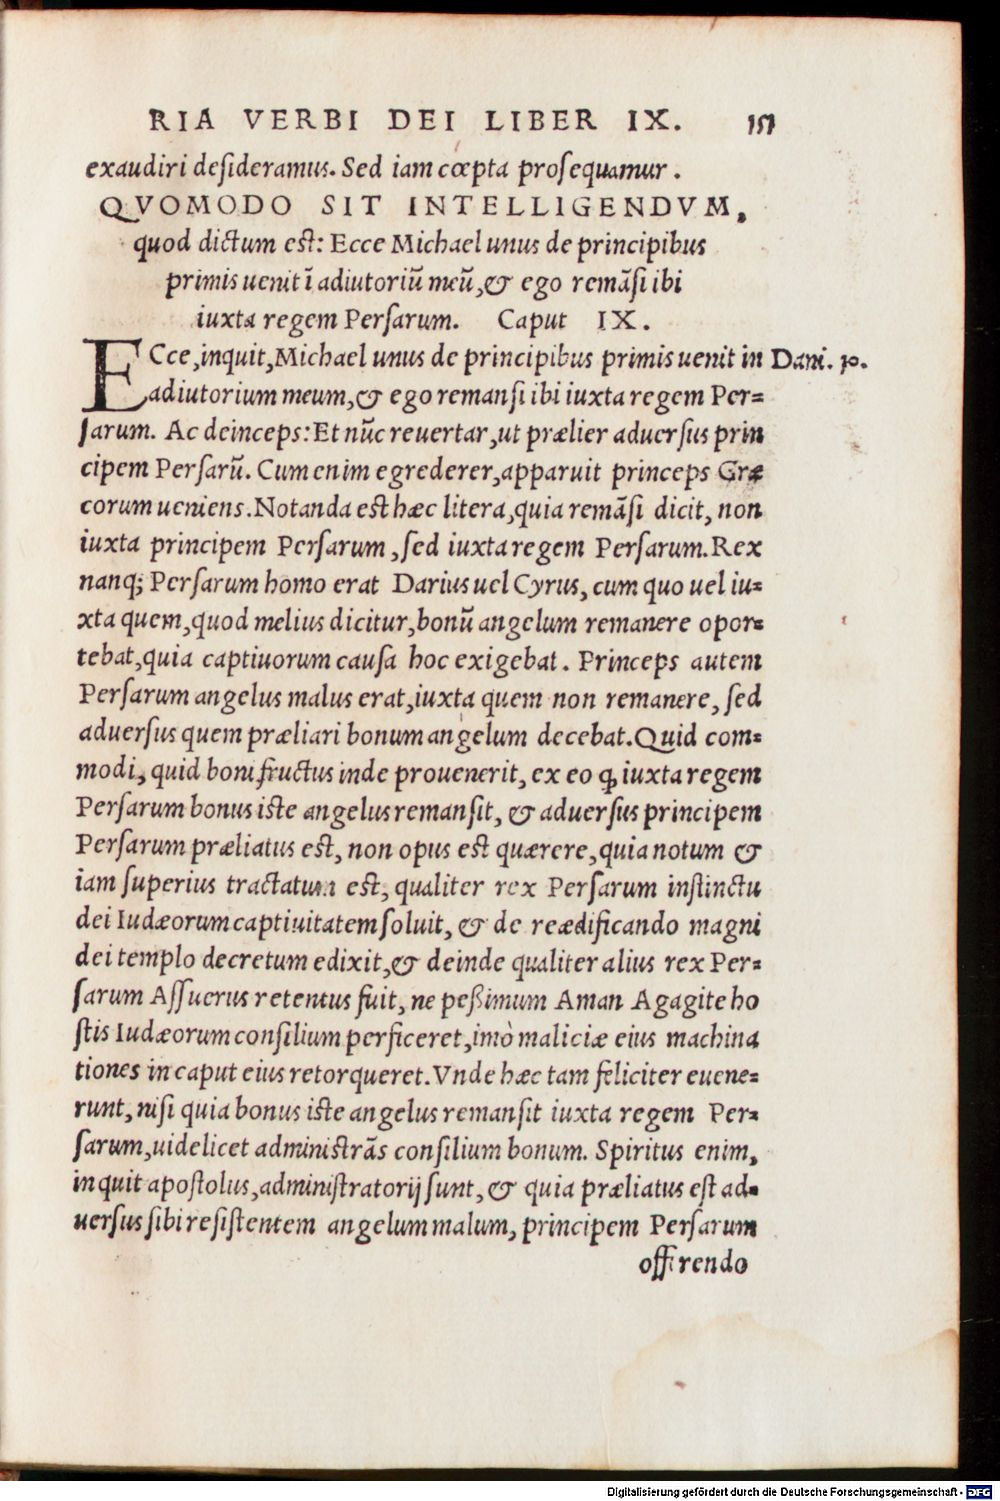 RIA VERBI DEI LIBER IX. 151
exaudiri desideramus. Sed iam cœpta prosequamur.
QVOMODO SIT INTELLIGENDVM,
quod dictum est: Ecce Michael unus de principibus
primis uenit ī adiutoriū meū, & ego remāsi ibi
iuxta regem Persarum. Caput IX.
ECce, inquit, Michael unus de principibus primis uenit in Dani. 10.
adiutorium meum, & ego remansi ibi iuxta regem Per=
sarum. Ac deinceps: Et nūc reuertar, ut prælier aduersus prin
cipem Persarū. Cum enim egrederer, apparuit princeps Græ
corum ueniens. Notanda est hæc litera, quia remāsi dicit, non
iuxta principem Persarum, sed iuxta regem Persarum. Rex
nanq; Persarum homo erat Darius uel Cyrus, cum quo uel iu=
xta quem, quod melius dicitur, bonū angelum remanere opor=
tebat, quia captiuorum causa hoc exigebat. Princeps autem
Persarum angelus malus erat, iuxta quem non remanere, sed
aduersus quem præliari bonum angelum decebat. Quid com=
modi, quid boni fructus inde prouenerit, ex eo ꝙ iuxta regem
Persarum bonus iste angelus remansit, & aduersus principem
Persarum præliatus est, non opus est quærere, quia notum &
iam superius tractatum est, qualiter rex Persarum instinctu
dei Iudæorum captiuitatem soluit, & de reædificando magni
dei templo decretum edixit, & deinde qualiter alius rex Per=
sarum Assuerus retentus fuit, ne peßimum Aman Agagite ho
stis Iudæorum consilium perficeret, imò maliciæ eius machina
tiones in caput eius retorqueret. Vnde hæc tam feliciter euene=
runt, nisi quia bonus iste angelus remansit iuxta regem Per=
sarum, uidelicet administrās consilium bonum. Spiritus enim,
inquit apostolus, administratorij sunt, & quia præliatus est ad=
uersus sibi resistentem angelum malum, principem Persarum
offerendo
Digitalisierung gefördert durch die Deutsche Forschungsgemeinschaft - DFG